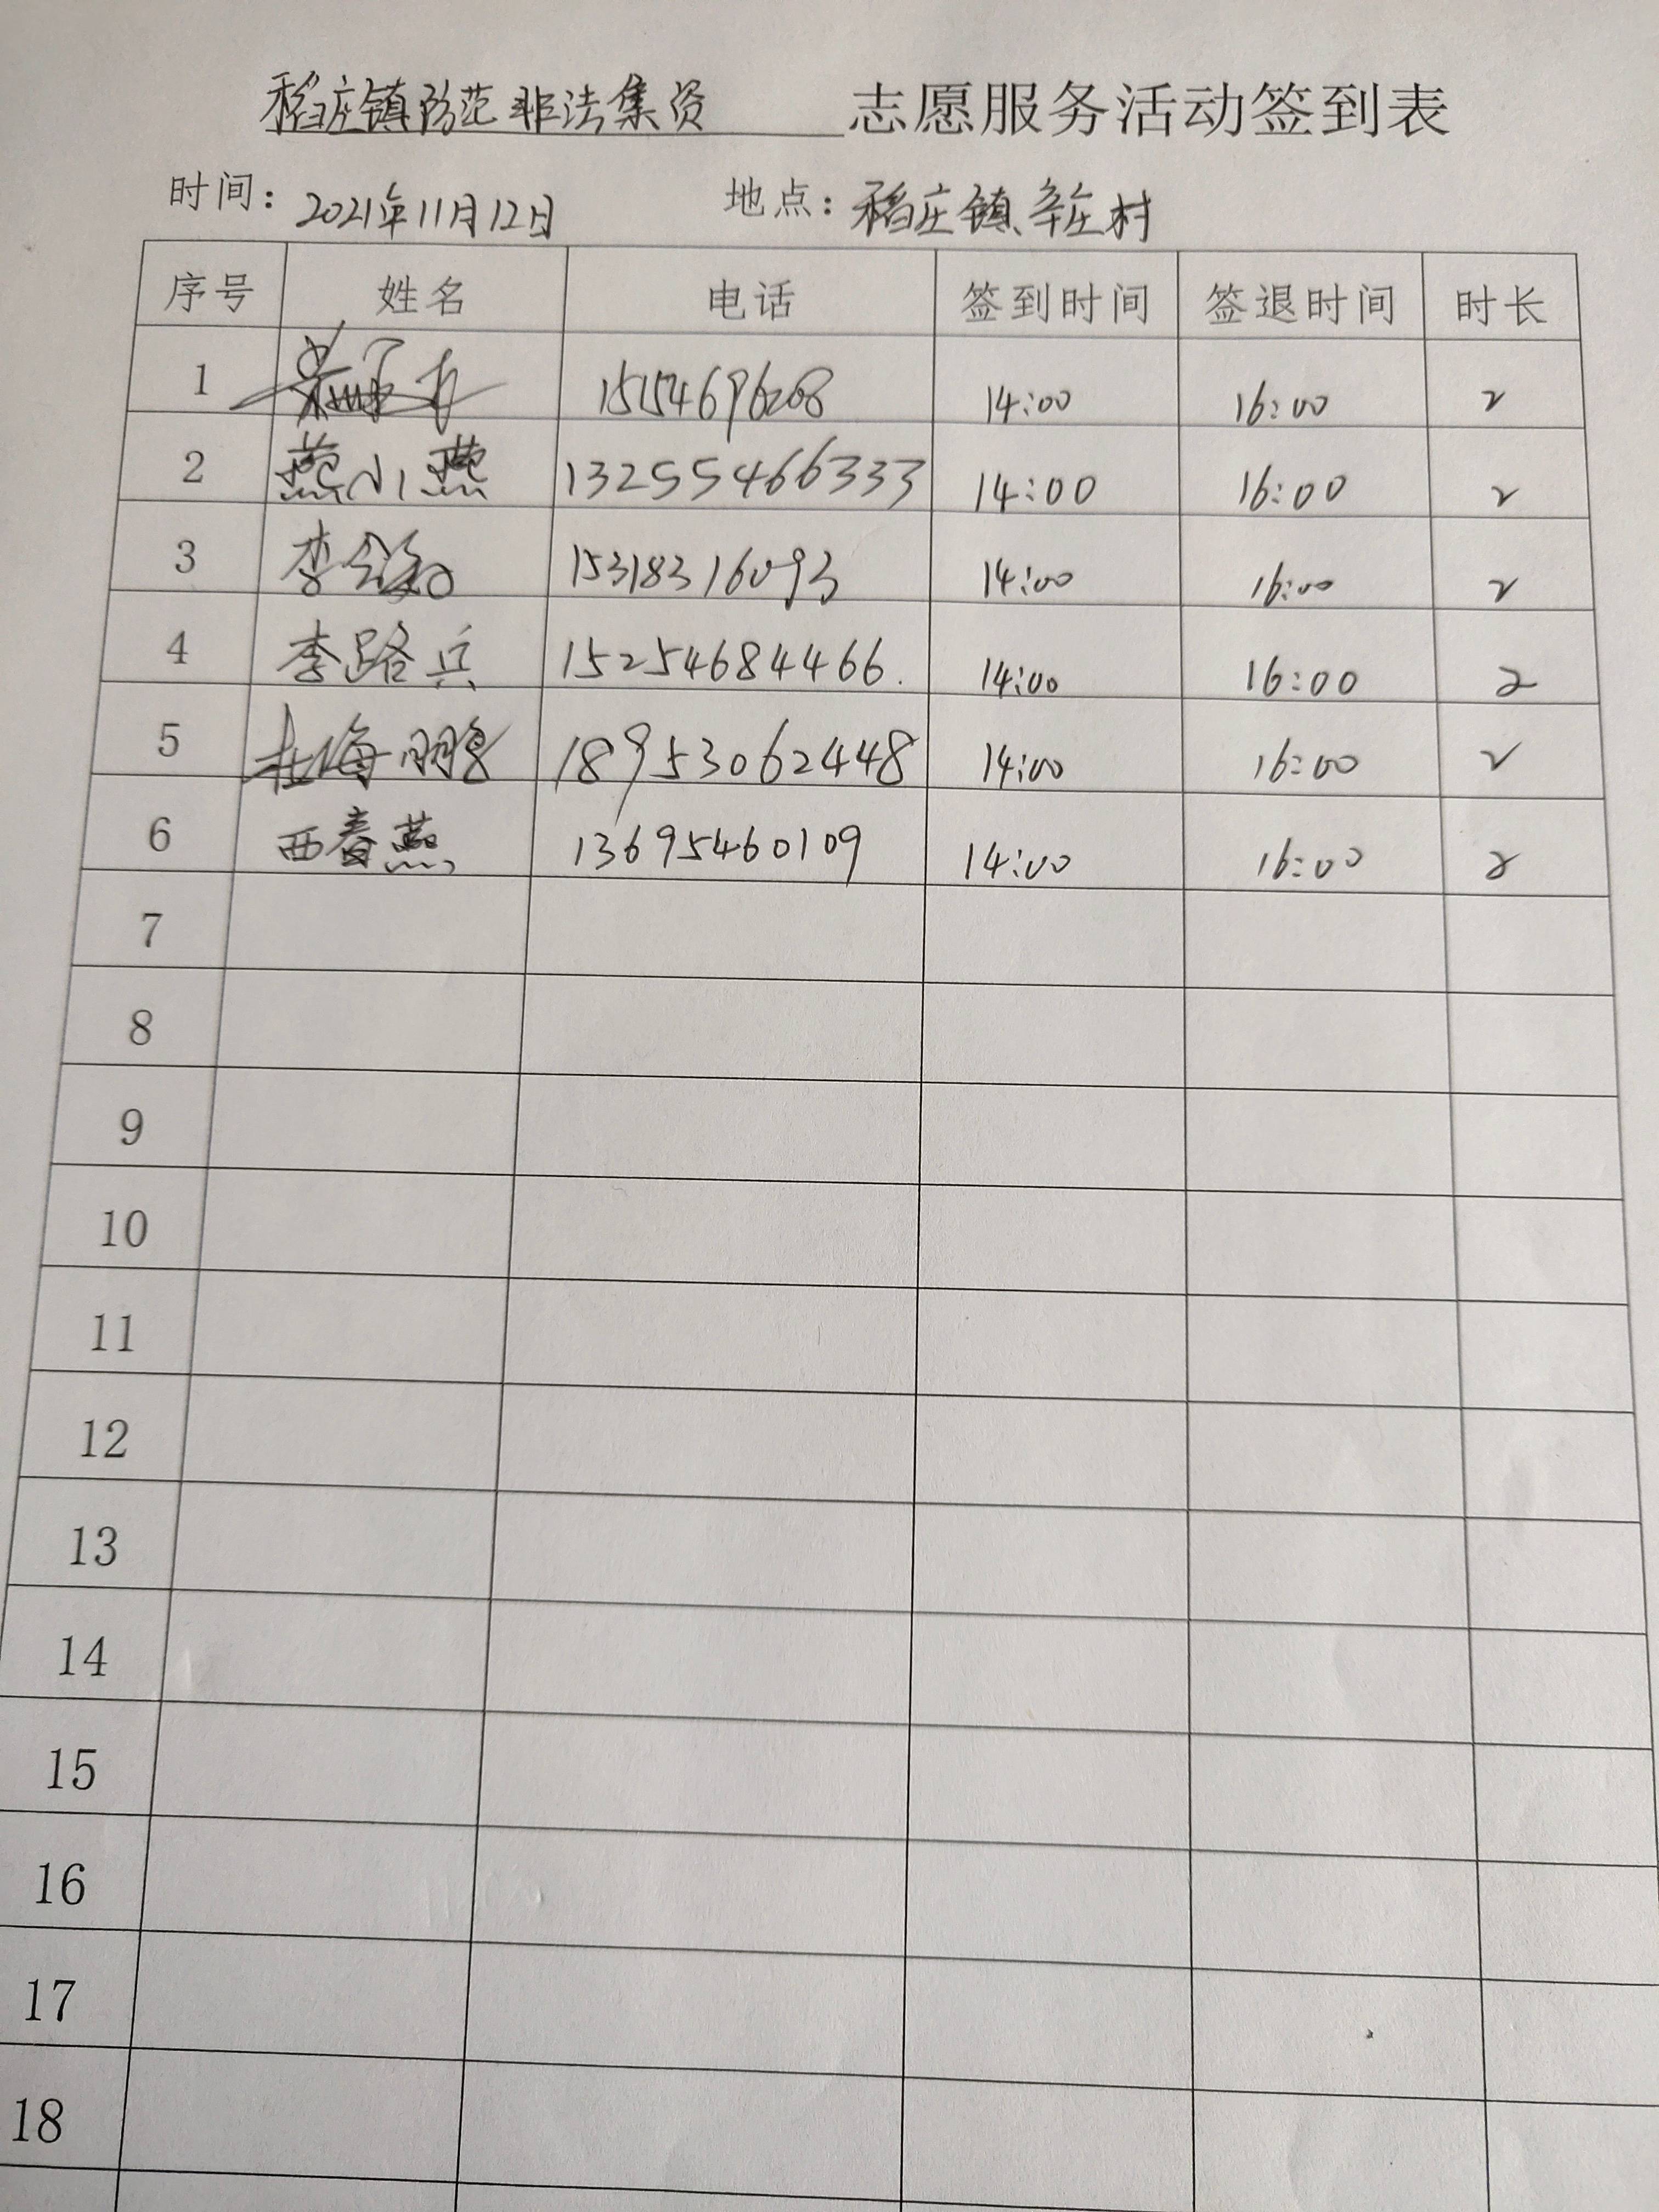 稻庄镇防范非法集资 志愿服务活动签到表
时间: 2021年11月12日 地点: 稻庄镇、辛庄村
序号 姓名 电话 签到时间 签退时间 时长
1 14:00 16:00 2
2 燕小燕 13255466333 14:00 16:00 2
3 李 15318316093 14:00 16:00 2
4 李路兵 15254684466. 14:00 16:00 2
5 杜海鹏 18953062448 14:00 16:00 2
6 西春燕 13695460109 14:00 16:00 2
7
8
9
10
11
12
13
14
15
16
17
18